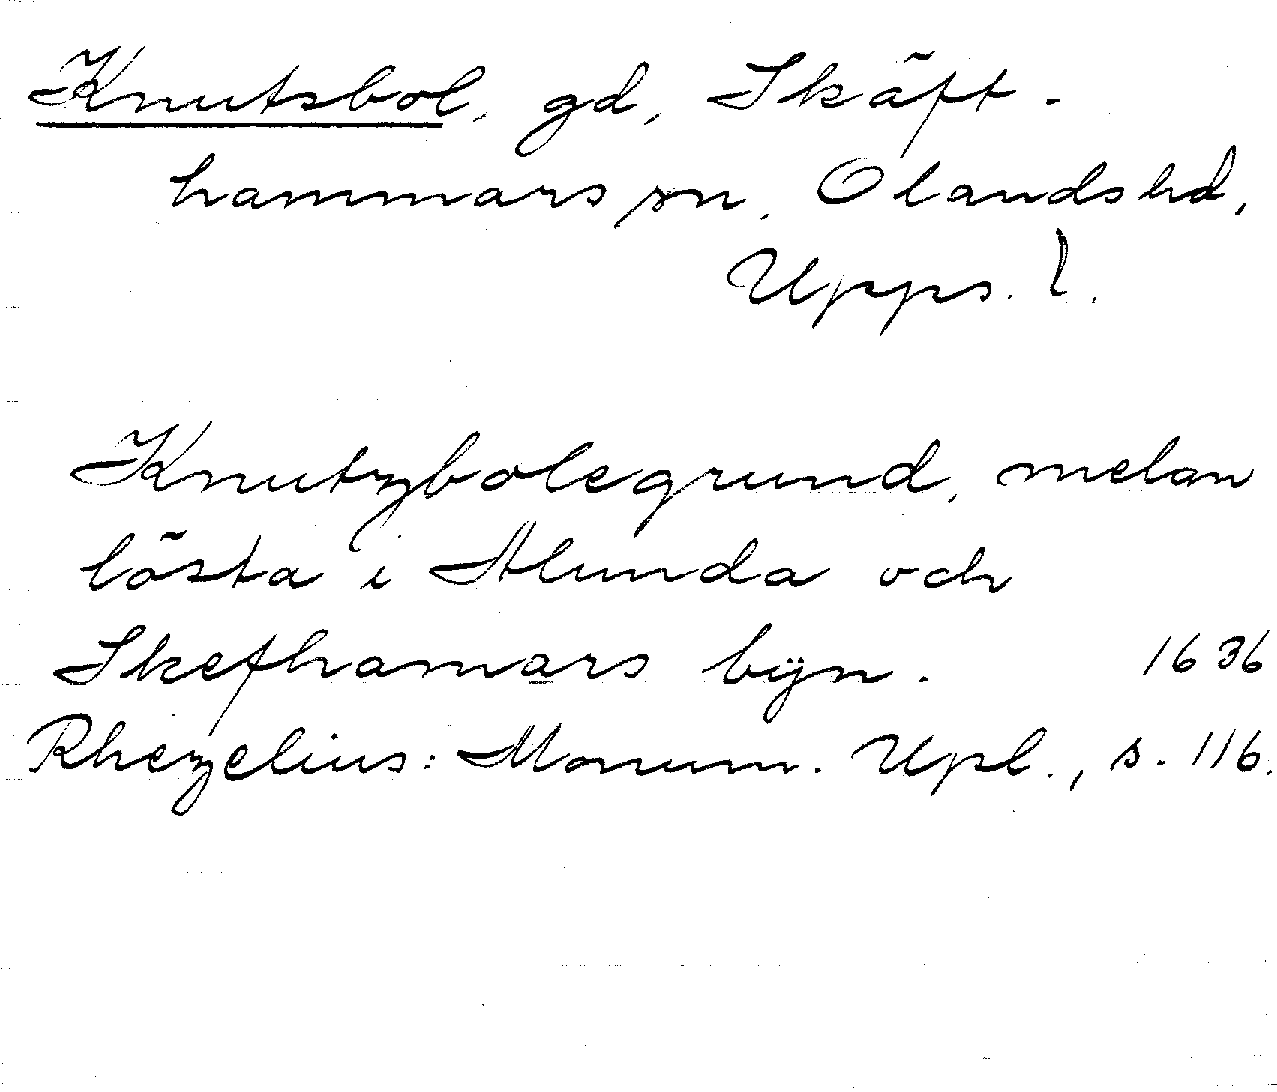 Knutsbol, gd, Skäft-
hammars sn, Olands hd,
Upps. l.
Knutzbolegrund, melan
lösta i Alunda och
Skefhamars bÿn. 1636
Rhezelius: Monum. Upl., s. 116.